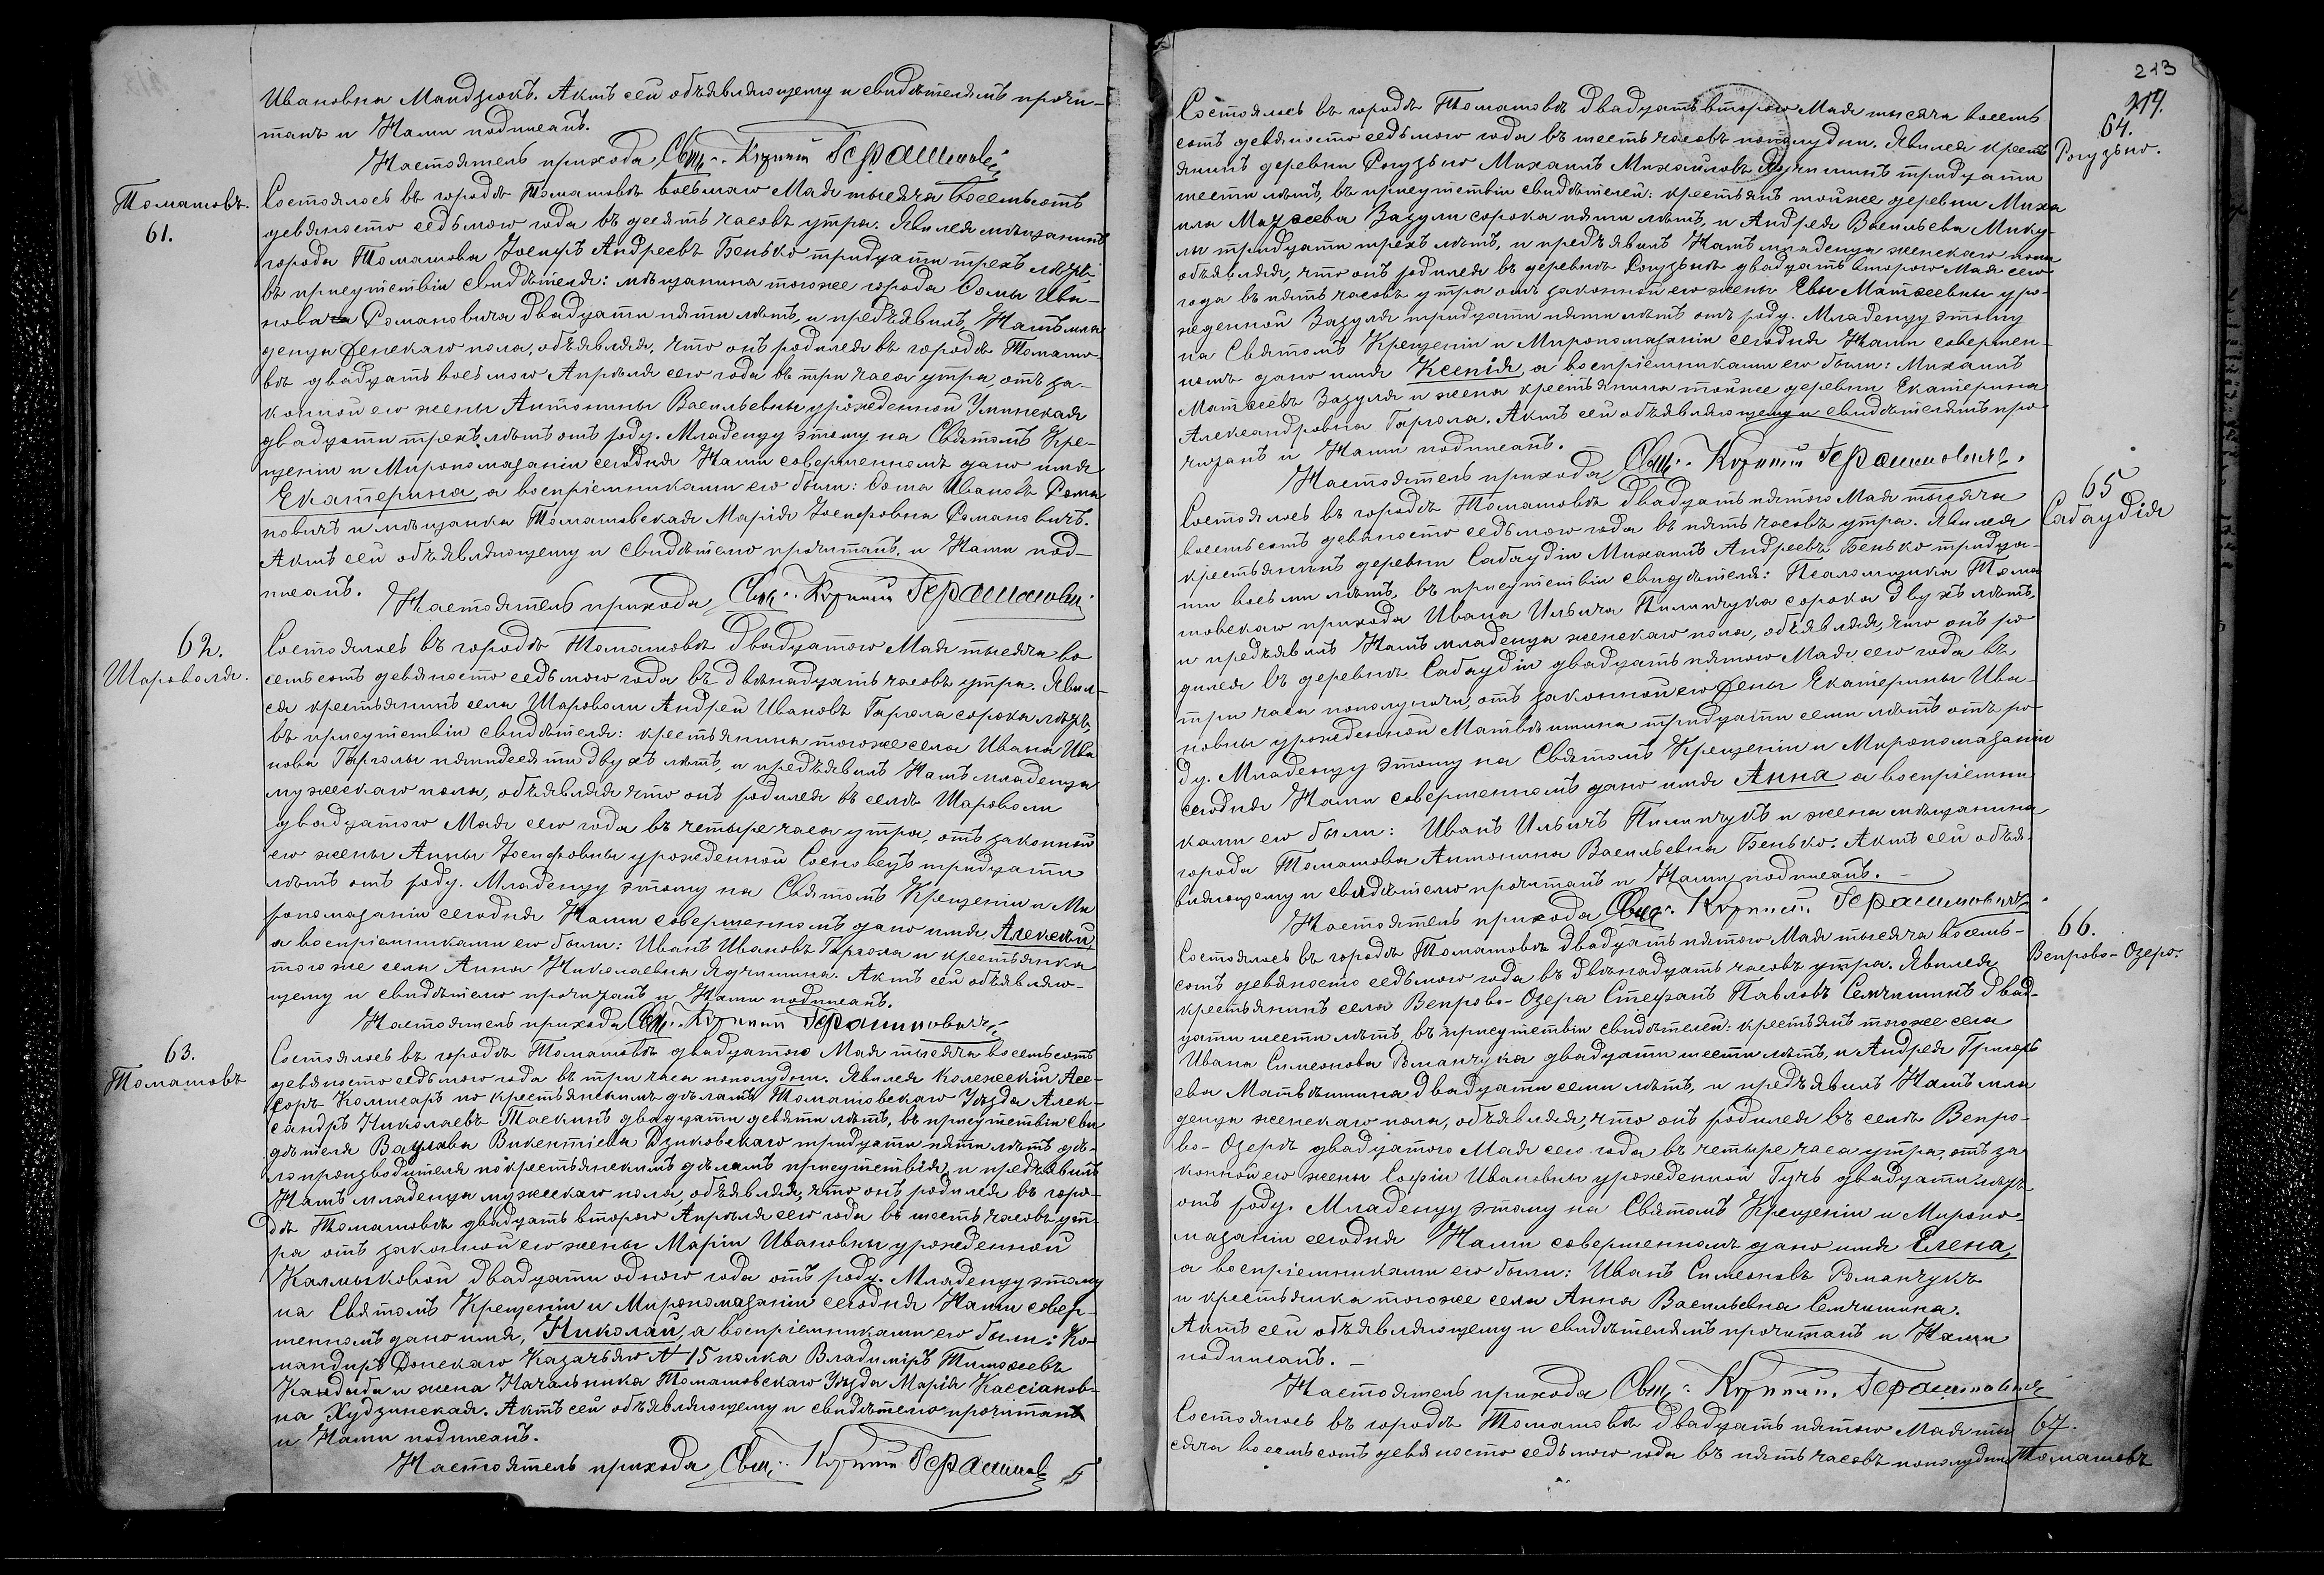 Ивановна Мандзюкъ. Актъ сей объявляющему и свидѣтелямъ прочи-
танъ и Нами подписанъ.
Настоятель прихода, Свщ:
Томашовъ.
61.
Состоялось въ городѣ Томашовѣ восьмаго Мая тысяча восемьсотъ
девяносто седьмого года въ десять часовъ утра. Явился мѣщанинъ
города Томашова Іосифъ Андреевъ Бенько тридцати трехъ лѣтъ
въ присутствіи свидѣтеля: мѣщанина того же города Ѳомы Ива-
нова Романовича двадцати пяти лѣтъ, и предъявилъ Намъ мла-
денца женскаго пола, объявляя, что онъ родился въ городѣ Томашо-
вѣ двадцать восьмого Апрѣля сего года въ три часа утра, отъ за-
конной его жены Антонины Васильевны урожденной
двадцати трехъ лѣтъ отъ роду. Младенцу этому на Святомъ Кре-
щеніи и Миропомазаніи сегодня Нами совершенномъ дано имя
Екатерина, а воспріемниками его были: Ѳома Ивановъ Рома
новичъ и мѣщанка Томашовская Марія Іосифовна Романовичъ.
Актъ сей объявляющему и свидѣтелю прочитанъ, и Нами под-
писанъ.
Настоятель прихода, Свщ:
62.
Шароволя.
Состоялось въ городѣ Томашовѣ двадцатого Мая тысяча во
семьсотъ девяносто седьмого года въ двѣнадцать часовъ утра. Явил-
ся крестьянинъ села Шароволи Андрей Ивановъ Гаргола сорока лѣтъ,
въ присутствіи свидѣтеля: крестьянина того же села Ивана Ива
нова Гарголы пятидесяти двухъ лѣтъ, и предъявилъ Намъ младенца
мужескаго пола, объявляя что онъ родился въ селѣ Шароволи
двадцатого Мая сего года въ четыре часа утра, отъ законной
его жены Анны Іосифовны урожденной Сосновецъ тридцати
лѣтъ отъ роду. Младенцу этому на Святомъ Крещеніи и Ми
ропомазаніи сегодня Нами совершенномъ дано имя Алексѣй
а воспріемниками его были: Иванъ Ивановъ Гаргола и крестьянка
того же села Анна Николаевна Ядчишина. Актъ сей объявляю-
щему и свидѣтелю прочитанъ и Нами подписанъ.
Настоятель прихода Свщ:
63.
Томашовъ
Состоялось въ городѣ Томашовѣ двадцатого Мая тысяча восемьсотъ
девяносто седьмого года въ три часа пополудни. Явился Колежскій Асе-
соръ Комисаръ по крестьянскимъ дѣламъ Томашовскаго Уѣзда Алек-
сандръ Николаевъ Таскинъ двадцати девяти лѣтъ, въ присутствіи сви
дѣтеля Вацлава Викентіева Дзиковскаго тридцати пяти лѣтъ дѣ-
лопроизводителя по крестьянскимъ дѣламъ присутствія, и предъявилъ
Намъ младенца мужескаго пола, объявляя, что онъ родился въ горо-
дѣ Томашовѣ двадцать второго Апрѣля сего года въ шесть часовъ ут-
ра отъ законной его жены Маріи Ивановны урожденной
Калмыковой двадцати одного года отъ роду. Младенцу этому
на Святомъ Крещеніи и Миропомазаніи сегодня Нами совер-
шенномъ дано имя, Николай, а воспріемниками его были: Ко-
мандиръ Донскаго Казачьяго № 15 полка Владиміръ Тимоѳеевъ
и жена Начальника Томашовскаго Уѣзда Марія Кассіанов-
на Худзинская. Актъ сей объявляющему и свидѣтелю прочитанъ
и Нами подписанъ.
Настоятель прихода Свщ:
213
64.
Рогузьно.
Состоялось въ городѣ Томашовѣ двадцать второго Мая тысяча восемь
сотъ девяносто седьмого года въ шесть часовъ пополудни. Явился кресть
янинъ деревни Рогузьно Михаилъ Михайловъ Ядчишинъ тридцати
шести лѣтъ, въ присутствіи свидѣтелей: крестьянъ тойже деревни Миха
ила Матѳеева Зазули сорока пяти лѣтъ, и Андрея Васильева Мику-
ли тридцати трехъ лѣтъ, и предъявилъ Намъ младенца женскаго пола
объявляя, что онъ родился въ деревнѣ Рогузьнѣ двадцать второго Мая сего
года въ пять часовъ утра отъ законной его жены Евы Матѳеевны уро-
жденной Зазуля тридцати пяти лѣтъ отъ роду. Младенцу этому
на Святомъ Крещеніи и Миропомазаніи сегодня Нами совершен-
номъ дано имя Ксенія, а воспріемниками его были: Михаилъ
Матѳеевъ Зазуля и жена крестьянина тойже деревни Екатерина
Александровна Гаргола. Актъ сей объявляющему и свидѣтелямъ про
читанъ и Нами подписанъ.
Настоятель прихода, Свщ:
65
Сабаудія
Состоялось въ городѣ Томашовѣ двадцать пятого Мая тысяча
восемьсотъ девяносто седьмого года въ пять часовъ утра. Явился
крестьянинъ деревни Сабаудіи Михаилъ Андреевъ Бенько тридца-
ти восьми лѣтъ, въ присутствіи свидѣтеля: Псаломщика Тома
шовскаго прихода Ивана Ильича Пилипчука сорока двухъ лѣтъ,
и предъявилъ Намъ младенца женскаго пола, объявляя, что онъ ро
дился въ деревнѣ Сабаудіи двадцать пятого Мая сего года въ
три часа пополуночи, отъ законной его жены Екатерины Ива-
новны урожденной Матвѣишина тридцати семи лѣтъ отъ ро-
ду. Младенцу этому на Святомъ Крещеніи и Миропомазаніи
сегодня Нами совершенномъ дано имя Анна а воспріемни
ками его были: Иванъ Ильичъ Пилипчукъ и жена мѣщанина
города Томашова Антонина Васильевна Бенько. Актъ сей объя-
вляющему и свидѣтелю прочитанъ и Нами подписанъ. –
Настоятель прихода Свщ:
66.
Вепрово-Озеро.
Состоялось въ городѣ Томашовѣ двадцать пятого Мая тысяча восемь-
сотъ девяносто седьмого года въ двѣнадцать часовъ утра. Явился
крестьянинъ села Вепрово-Озера Стефанъ Павловъ Семчишинъ двад-
цати шести лѣтъ, въ присутствіи свидѣтелей: крестьянъ того же села
Ивана Симеонова Романчука двадцати шести лѣтъ, и Андрея Григорь
ева Матвѣишина двадцати семи лѣтъ, и предъявилъ Намъ мла
денца женскаго пола, объявляя, что онъ родился въ селѣ Вепро-
во-Озерѣ двадцатого Мая сего года въ четыре часа утра, отъ за
конной его жены Софіи Ивановны урожденной Гучь двадцати лѣтъ
отъ роду. Младенцу этому на Святомъ Крещеніи и Миропо-
мазаніи сегодня Нами совершенномъ дано имя Елена,
а воспріемниками его были: Иванъ Симеоновъ Романчукъ
и крестьянка того же села Анна Васильевна Семчишина.
Актъ сей объявляющему и свидѣтелямъ прочитанъ и Нами
подписанъ. –
Настоятель прихода Свщ:
67.
Томашовъ
Состоялось въ городѣ Томашовѣ двадцать пятого Мая ты
сяча восемьсотъ девяносто седьмого года въ пять часовъ пополудни